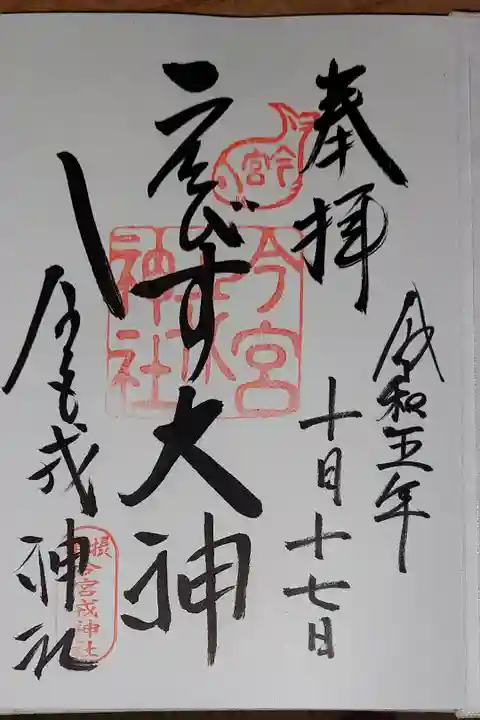 奉拝
令和五年
十月十七日
今宮
今宮
神社
ゑびす大神
戎神社
今宮戎神社